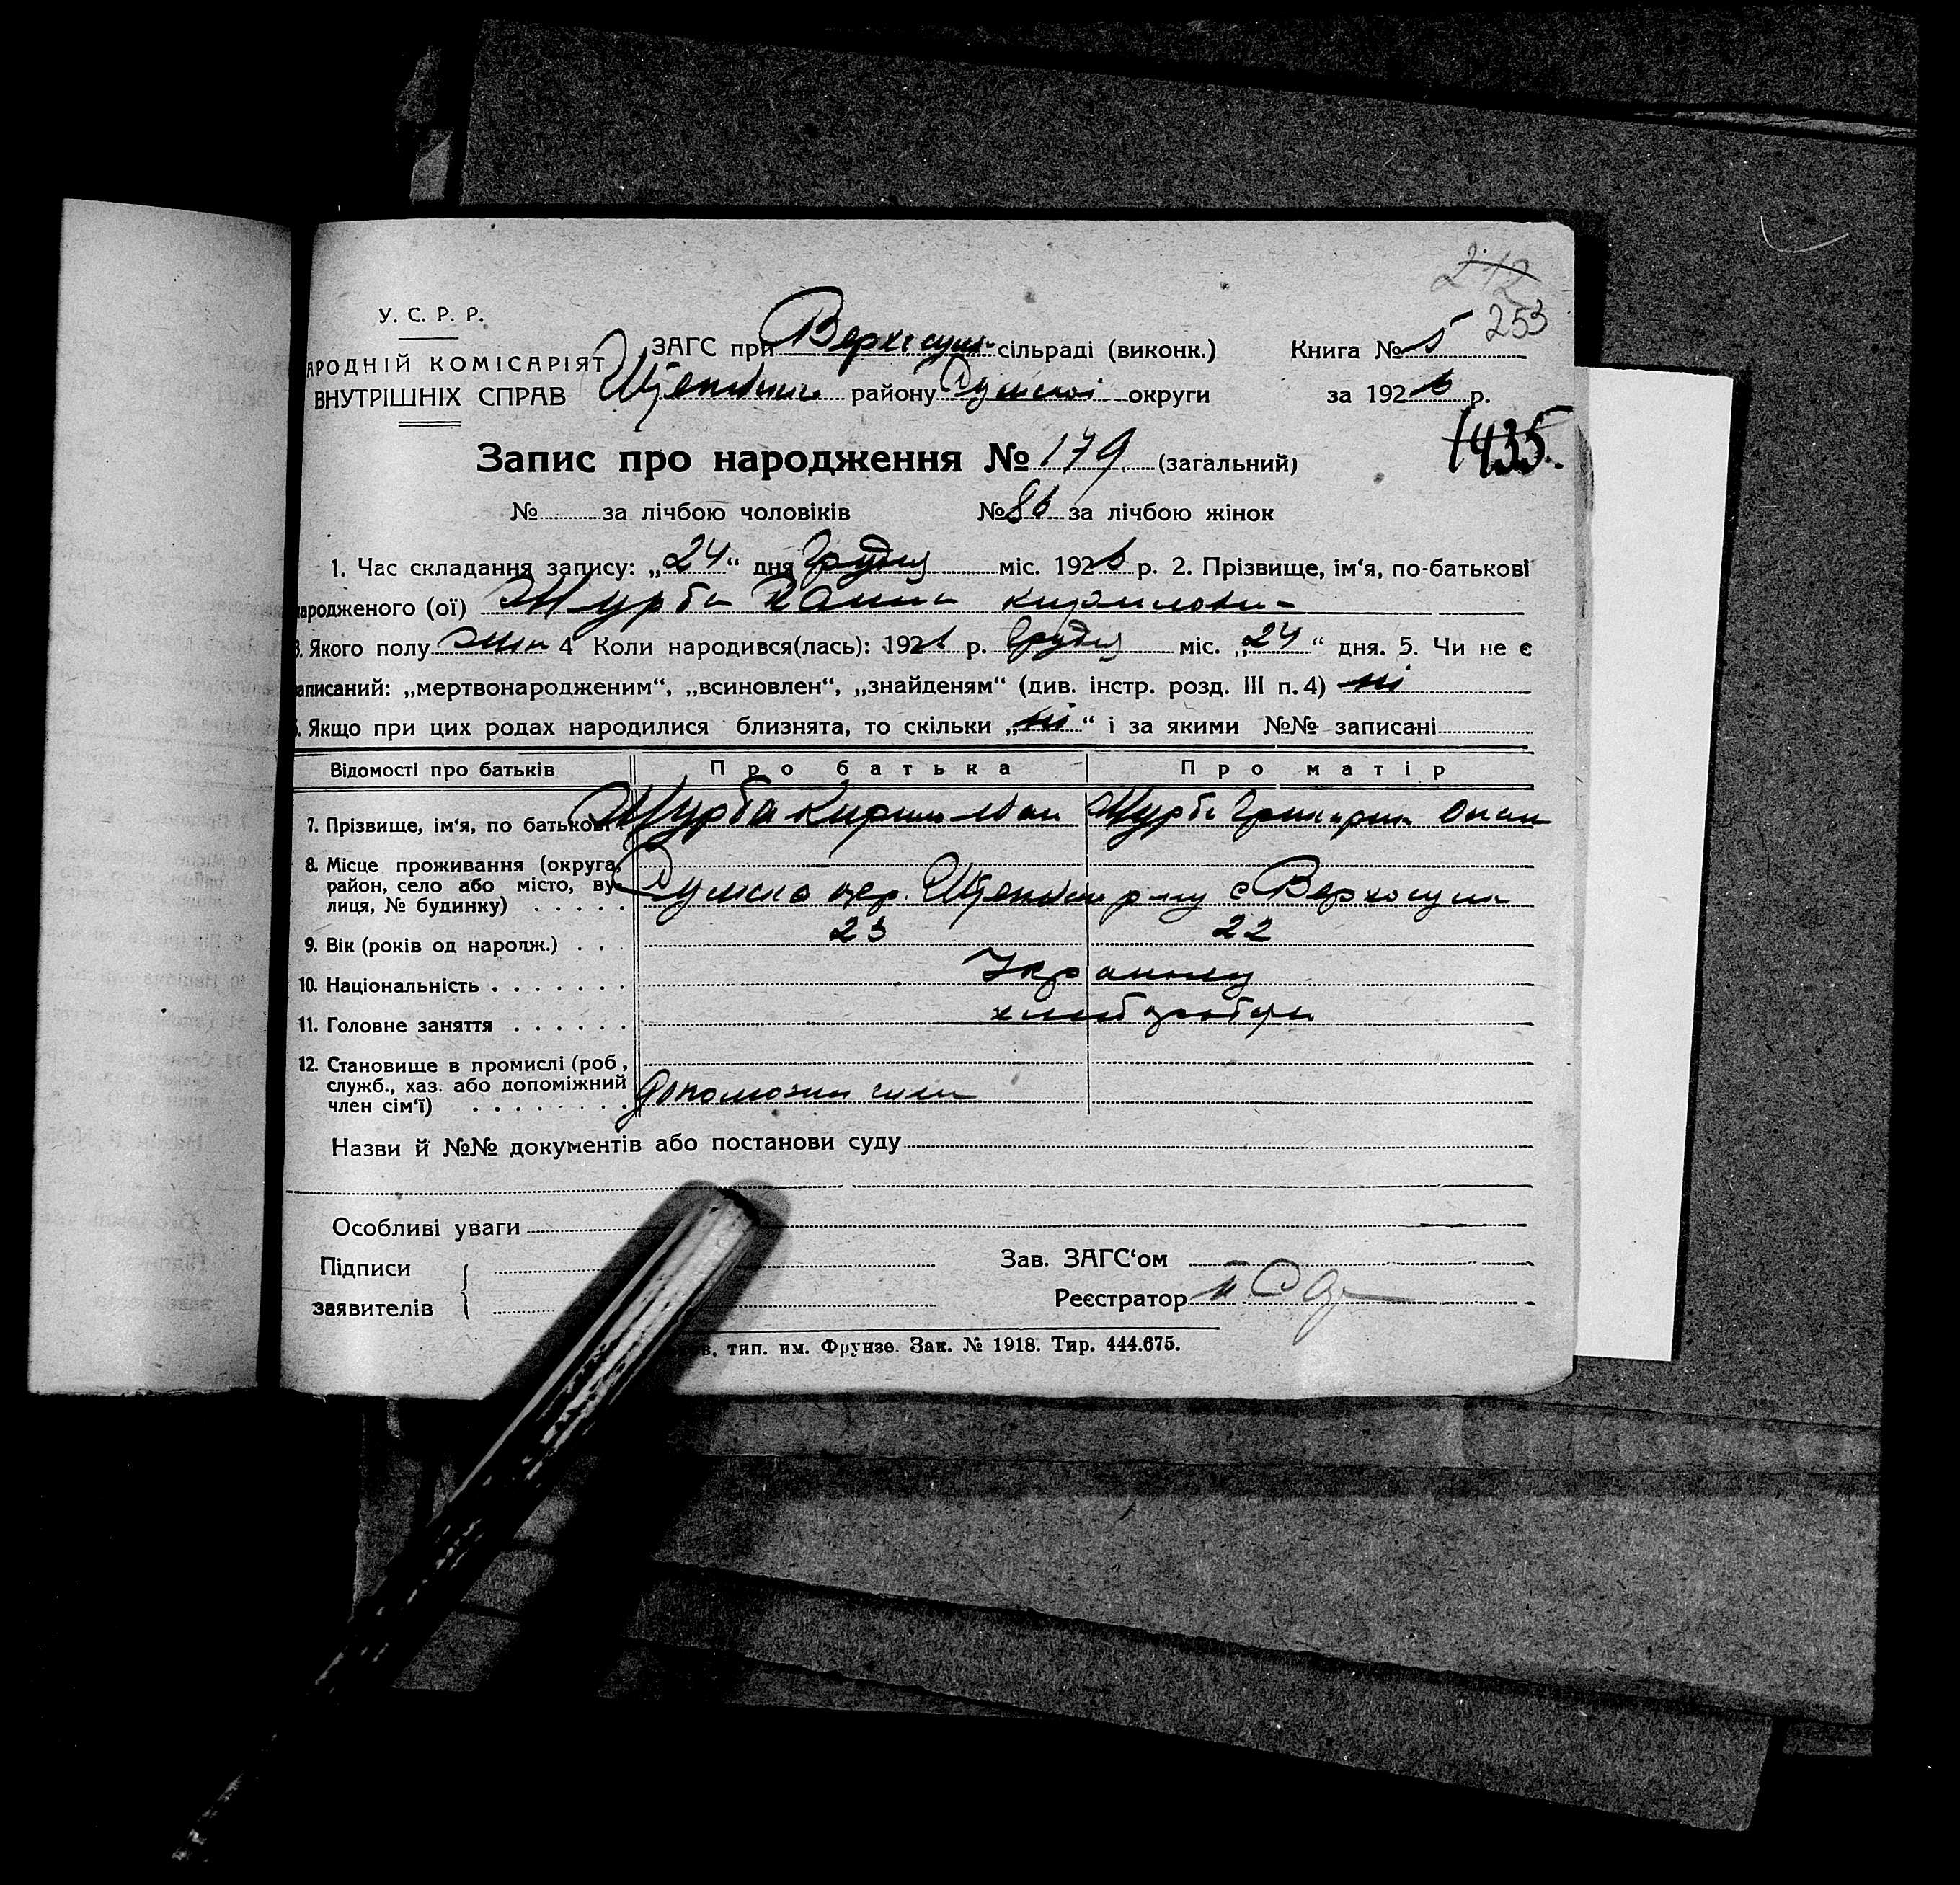 212
253
У. С. Р. Р.
АРОДНІЙ КОМІСАРІЯТ
ВНУТРІШНІХ СПРАВ
ЗАГС при Верхосул. сільраді (виконк.) Книга № 5
району Сумської округи за 1926 р.
1435.
Запис про народження № 179 (загальний)
№ за лічбою чоловіків № 86 за лічбою жінок
1. Час складання запису: „24“ дня Грудня міс. 1926 р. 2. Прізвище, ім‘я, по-батькові
народженого (ої) Журба Ганна Кирилови-
3. Якого полу жін 4 Коли народився(лась): 1926 р. Грудня міс. „24“ дня. 5. Чи не є
записаний: „мертвонародженим“, „всиновлен“, „знайденям“ (див. інстр. розд. III п. 4) ні
6. Якщо при цих родах народилися близнята, то скільки „ні“ і за якими №№ записані
Відомості про батьків Про батька Про матір
7. Прізвище, ім‘я, по батькові Журба Кирил Іван Журба
8. Місце проживання (округа, район, село або місто, вулиця, № будинку) Сумська окр. р-ну с Верхосула
9. Вік (років од народж.) 23 22
10. Національність
11. Головне заняття хлібороби
12. Становище в промислі (роб, служб., хаз. або допоміжний член сім‘ї) Допоможн сили
Назви й №№ документів або постанови суду
Особливі уваги
Підписи заявителів
Зав. ЗАГС‘ом
Реєстратор
в, тип. им. Фрунзе. Зак. № 1918. Тир. 444.675.